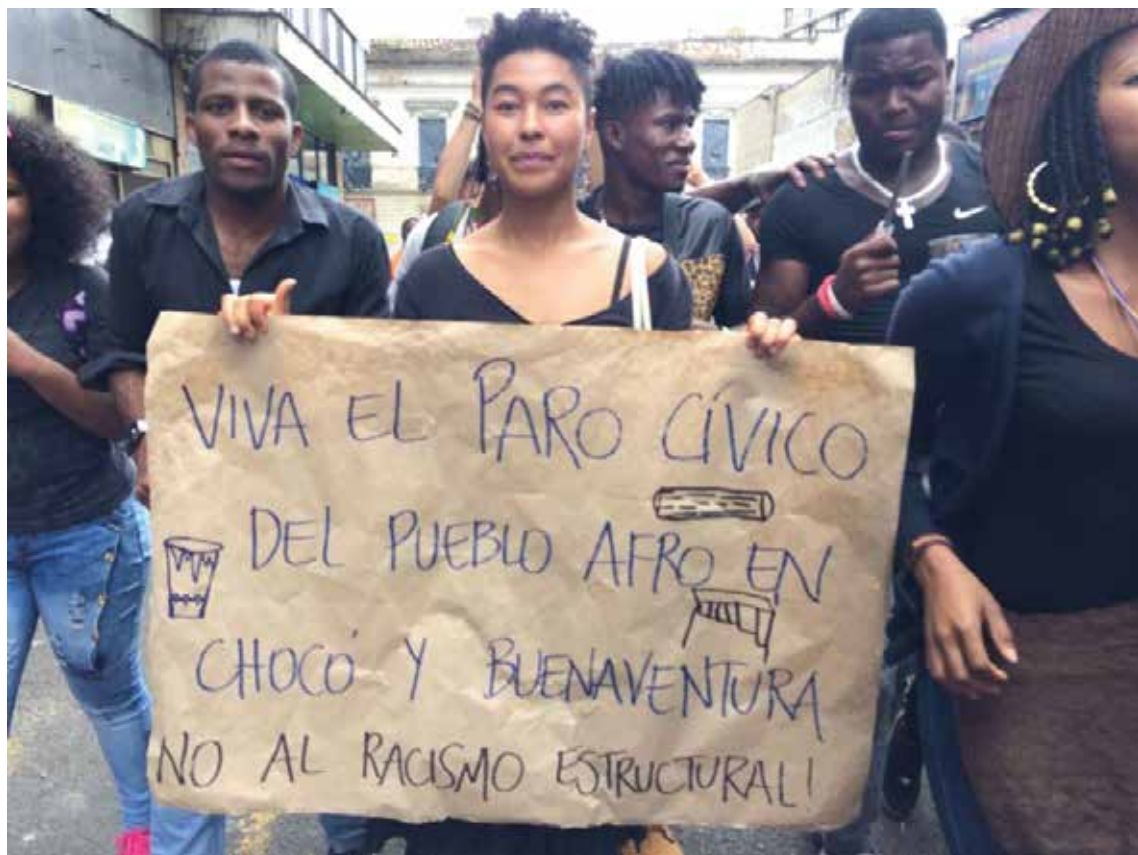 VIVA EL PARO CÍVICO
DEL PUEBLO AFRO EN
CHOCÓ Y BUENAVENTURA
NO AL RACISMO ESTRUCTURAL!